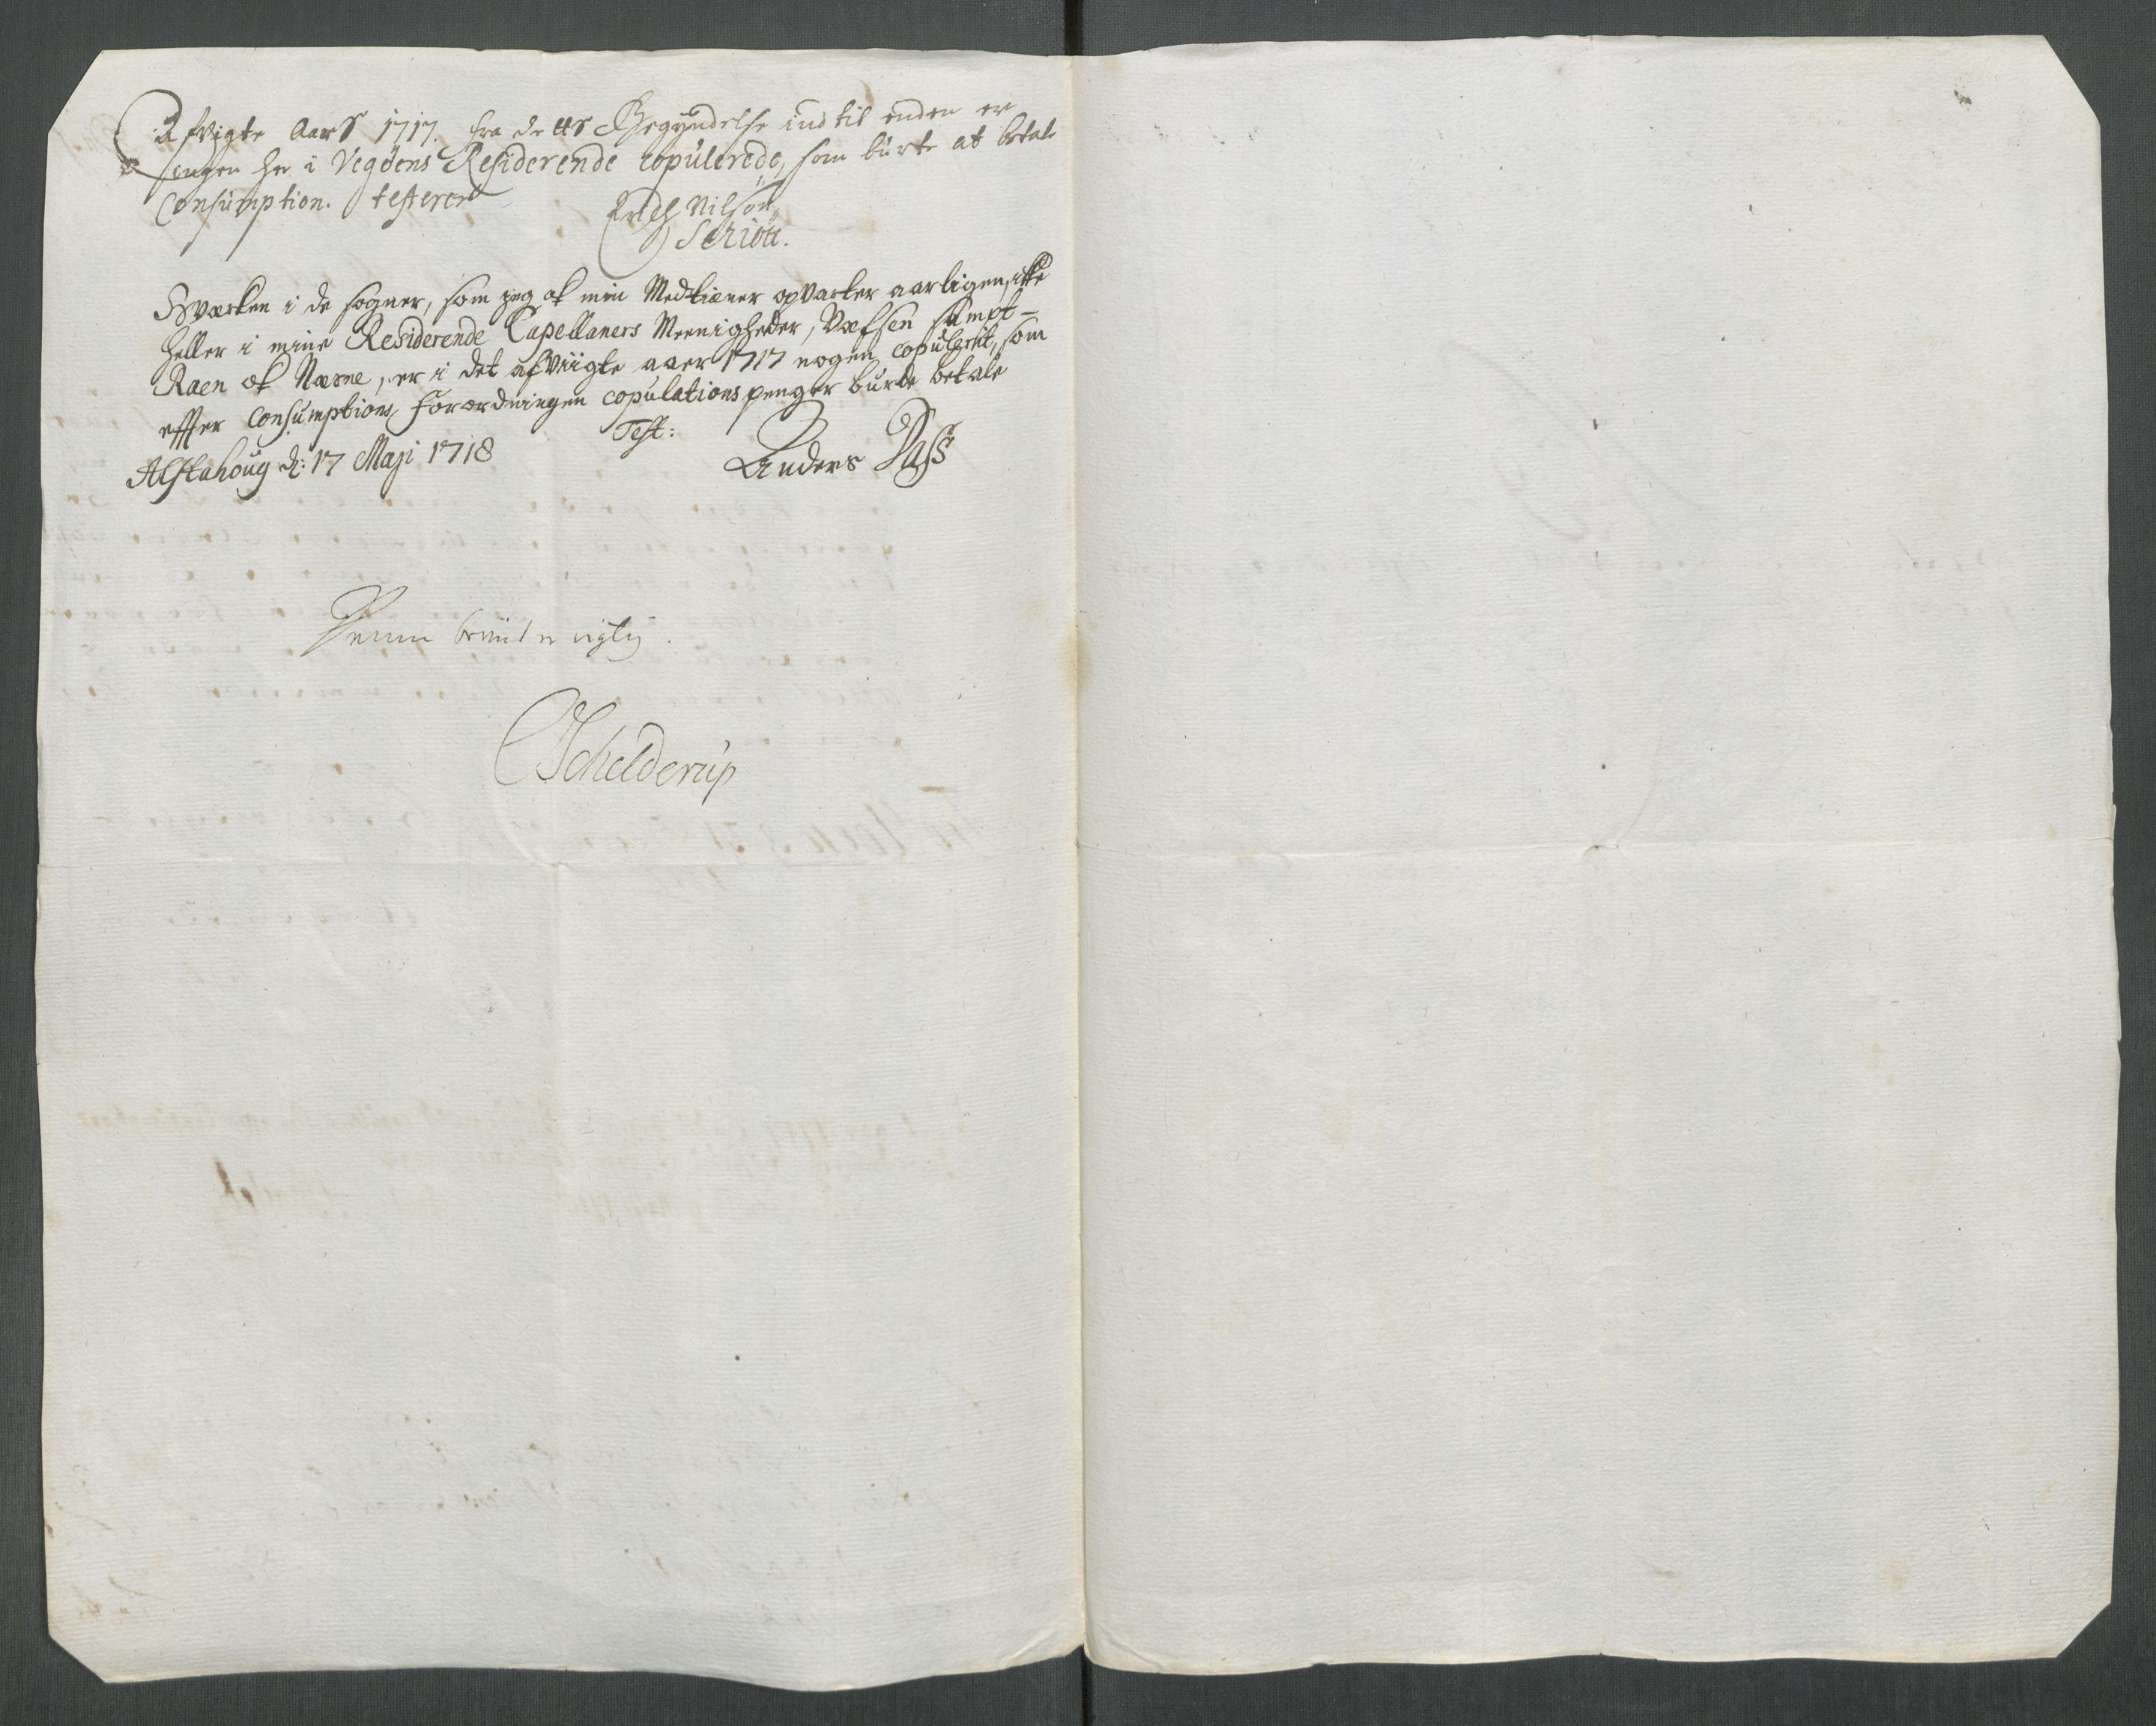 Afvigte Aars 1717. fra dets Begÿndelse ind til enden er
ingen her i Vegöens Residerende copulerede, som burte at betale
Consumption. testerer
Erich Nilsøn
Schiött.
Hværken i de sogner, som jeg ok min Medtiener opvarter aarligen, ikke
heller i mine Residerende Capellaners Meenigheder, Vefsen sampt
Raen ok Næsne, er i det afviigte aaer 1717 nogen copulerit, som
effter Consumptions forordningen copulations penger burde betale
Test:
Alstahoug d: 17 Maji 1718
Anders Dass
rigtig.
Schelderup